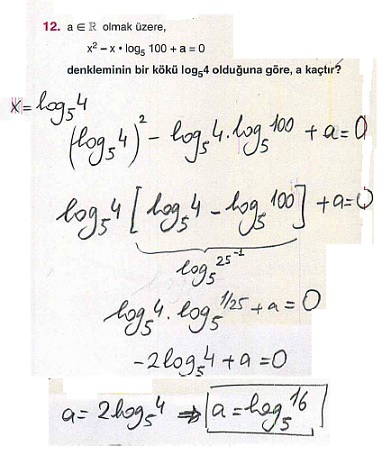 12. a ∈ ℝ olmak üzere,
x² – x • log₅ 100 + a = 0
denkleminin bir kökü log₅4 olduğuna göre, a kaçtır?
x = log₅4
(log₅4)² – log₅4 . log₅100 + a = 0
log₅4 [log₅4 – log₅100] + a = 0
log₅25⁻¹
log₅4 . log₅1/25 + a = 0
-2log₅4 + a = 0
a = 2log₅4 ⇒ a = log₅16